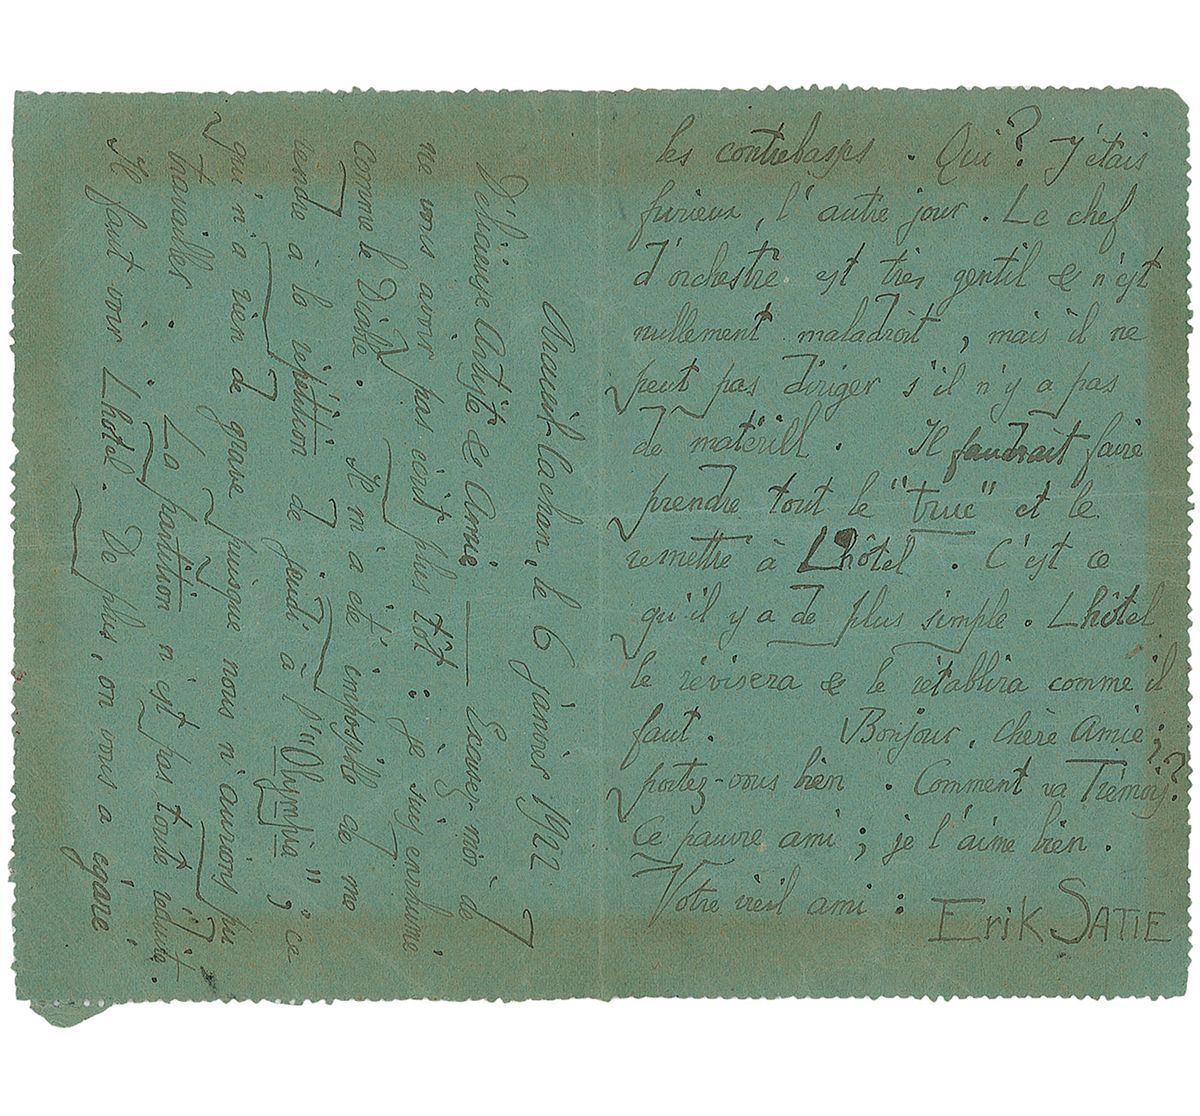 Arcueil-Cachan, le 6 janvier 1922
Délicieuse Artiste & Amie — Excusez-moi de
ne vous avoir pas écrit plus tôt : je suis enrhumé
comme le Diable. Il m'a été impossible de me
rendre à la répétition de jeudi à l'"Olympia" ; ce
qui n'a rien de grave puisque nous n'aurions pu
travailler. La partition n'est pas toute réduite.
Il faut voir Lhôtel. De plus, on vous a égaré
les contrebasses. Qui ? J'étais
furieux, l'autre jour. Le chef
d'orchestre est très gentil & n'est
nullement maladroit, mais il ne
peut pas diriger s'il n'y a pas
de matériel. Il faudrait faire
prendre tout le "truc" et le
remettre à Lhôtel. C'est ce
qu'il y a de plus simple. Lhôtel
le révisera & le rétablira comme il
faut. Bonjour, chère Amie ;
portez-vous bien. Comment va Trémois ?
Ce pauvre ami ; je l'aime bien.
Votre vieil ami : Erik SATIE